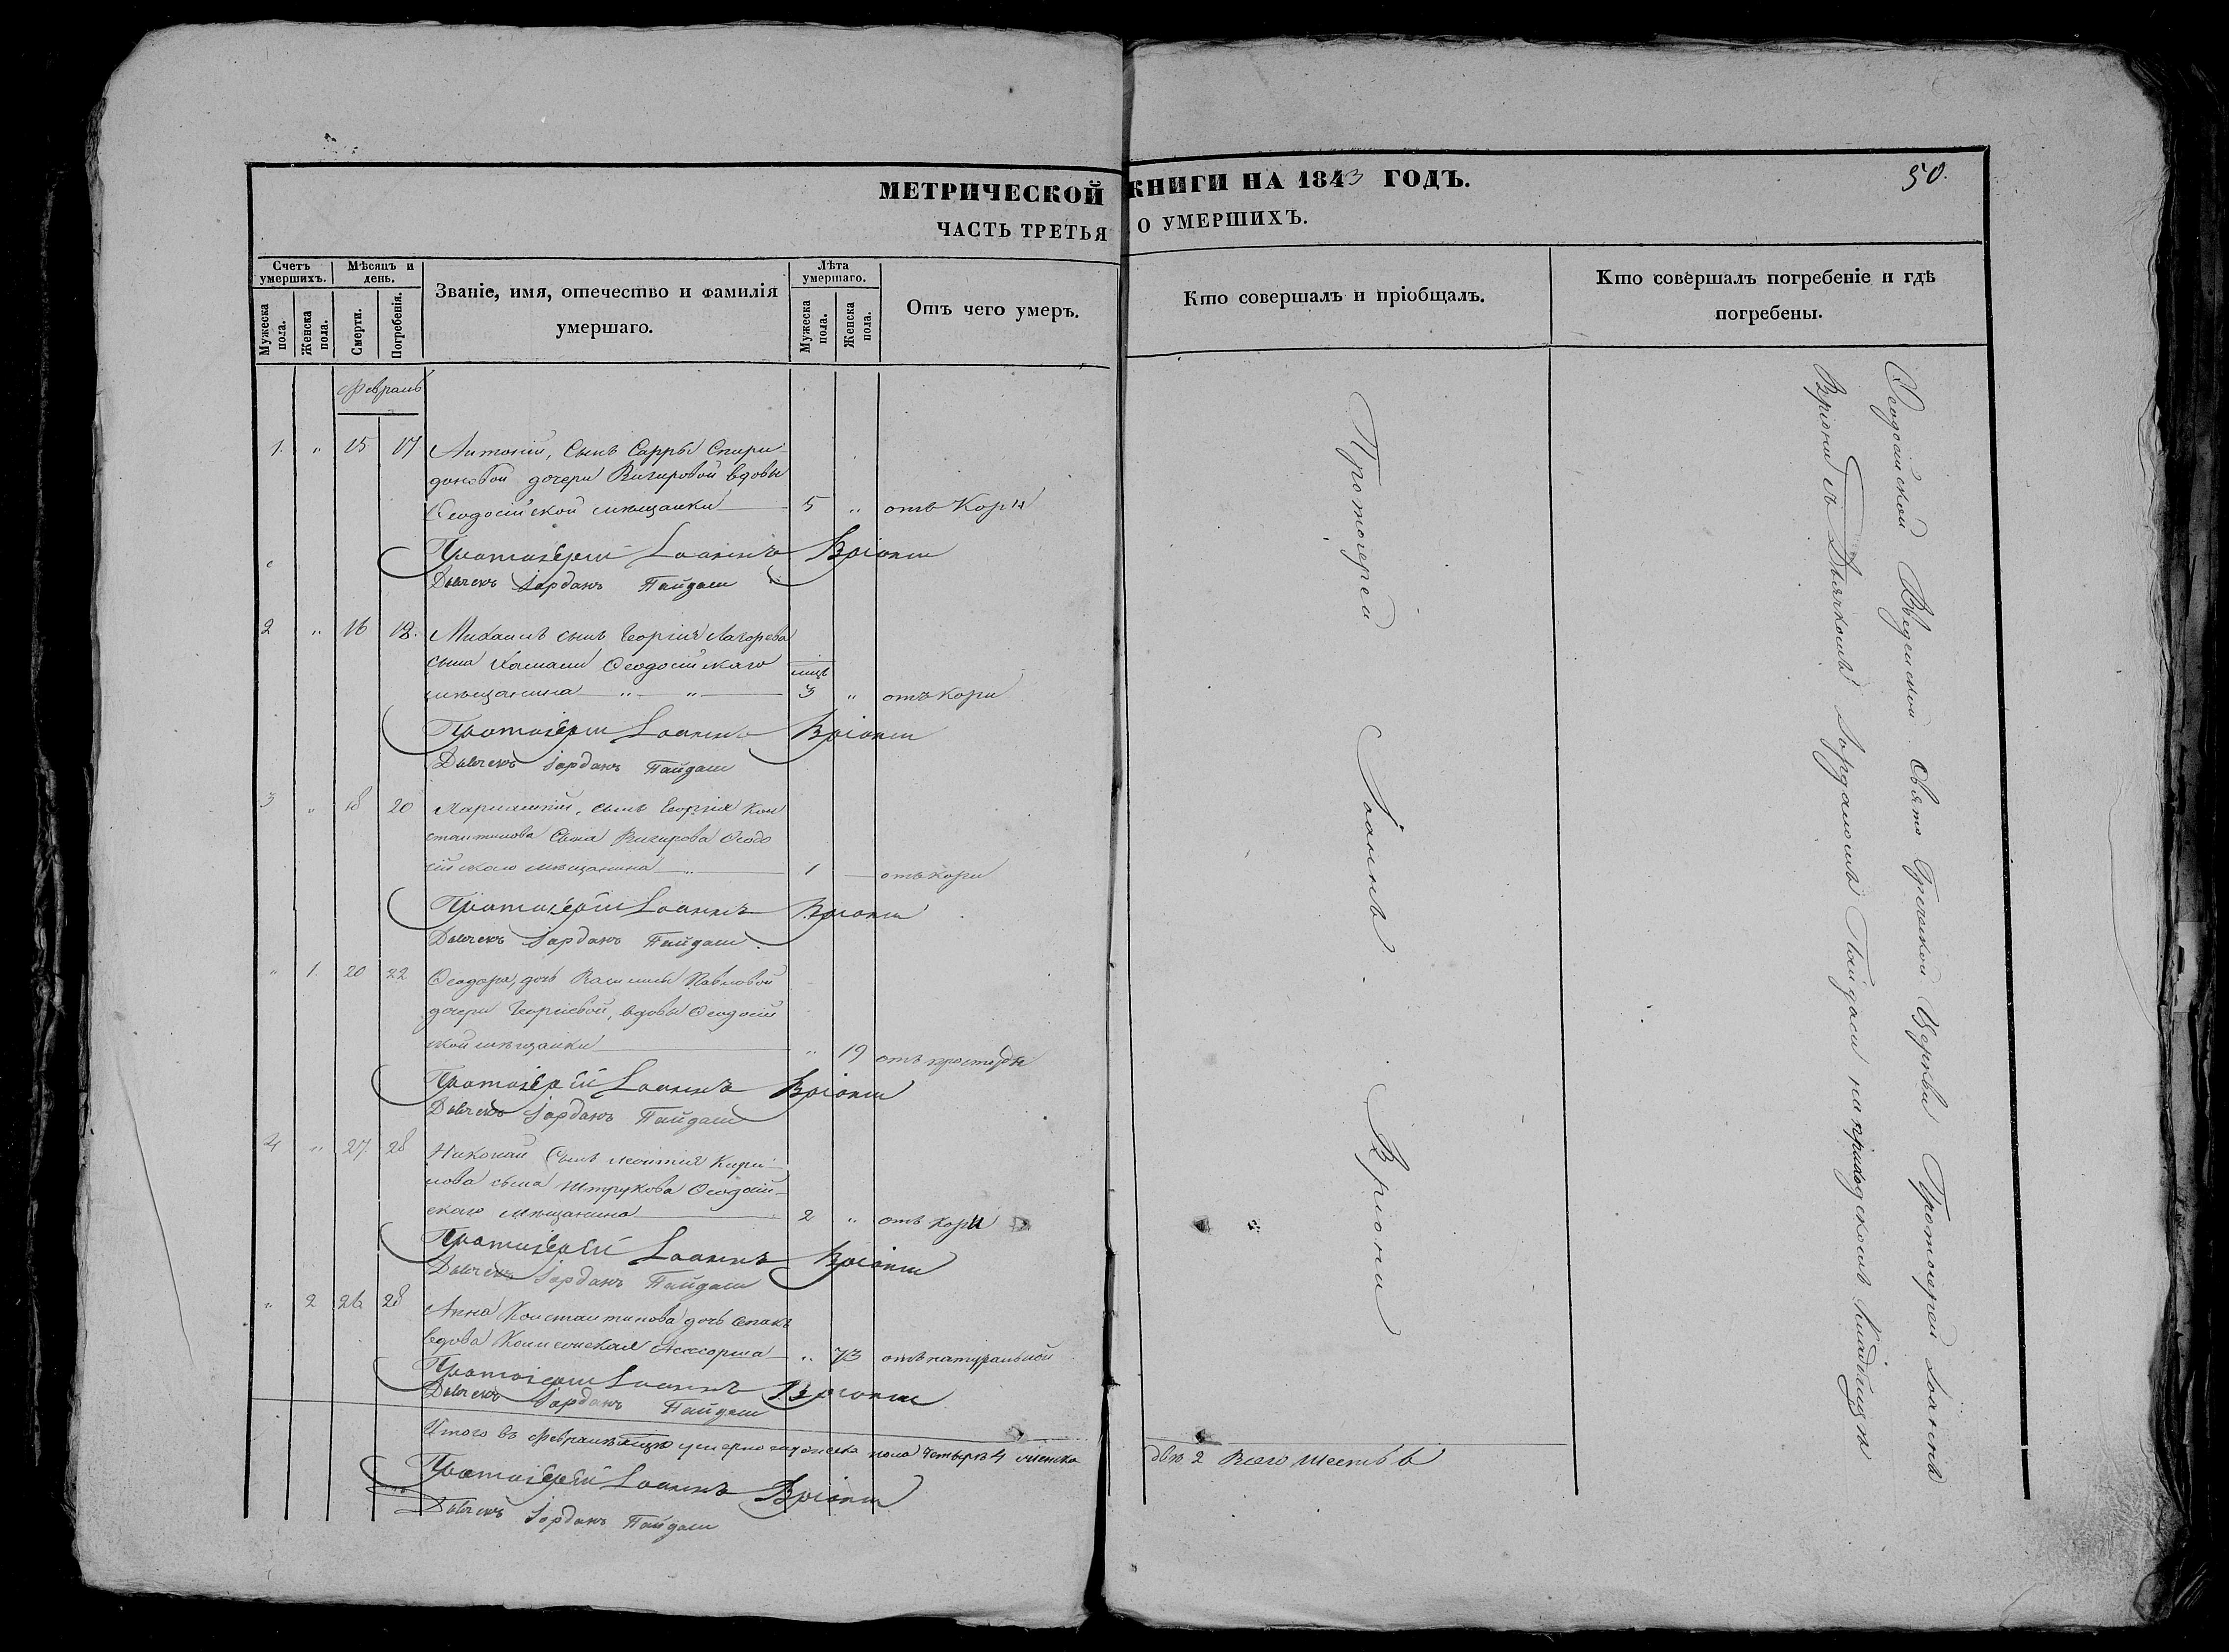 МЕТРИЧЕСКОЙ КНИГИ НА 1843 ГОДЪ.
50.
ЧАСТЬ ТРЕТЬЯ О УМЕРШИХЪ.
Счетъ умершихъ.
Мужеска пола.
Женска пола.
Мѣсяцъ и день.
Смерти.
Погребенія.
Званіе, имя, отечество и фамилія
умершаго.
Лѣта умершаго.
Мужеска пола.
Женска пола.
Отъ чего умеръ.
Кто совершалъ и пріобщалъ.
Кто совершалъ погребеніе и гдѣ
погребены.
Февраль
1. " 15 17 Антоній, Сынъ Сарры Спири-
доновой дочери вдовы
Ѳеодосійской мѣщанки 5 " отъ Кори
Протоіерей Іоаннъ Вріони
Дьячекъ Іорданъ Пайдаси
2 " 16 18. Михаилъ сынъ Георгія
сына Ѳеодосійскаго
мѣщанина " " мцъ 3 " отъ кори
Протоіерей Іоаннъ Вріони
Дьячекъ Іорданъ Пайдаси
3 " 18 20 сынъ Георгія Кон
стантинова Сына Ѳеодо
сійскаго мѣщанина " 1 отъ кори
Протоіерей Іоаннъ Вріони
Дьячекъ Іорданъ Пайдаси
" 1. 20 22 Ѳеодора, дочь Павловой
дочери Георгіевой, вдовы Ѳеодосій
ской мѣщанки " 19 отъ простуды
Протоіерей Іоаннъ Вріони
Дьячекъ Іорданъ Пайдаси
4 " 27 28 Николай Сынъ Кири-
лова сына Ѳеодосій-
скаго мѣщанина 2 " отъ кори
Протоіерей Іоаннъ Вріони
Дьячекъ Іорданъ Пайдаси
" 2 26 28 Анна Константинова дочь
вдова " 73 отъ натуральной
Протоіерей Іоаннъ Вріони
Дьячекъ Іорданъ Пайдаси
Итого въ Февралѣ мцѣ умерло мужеска пола четыре 4 женска
двѣ 2 Всего шесть 6
Протоіерей Іоаннъ Вріони
Дьячекъ Іорданъ Пайдаси
Протоіерей Іоаннъ Вріони
Ѳеодосійской Введенской Греческой Церкви Протоіерей Іоаннъ
Вріони съ Дьячкомъ Іорданомъ Пайдаси на приходскомъ кладбищѣ